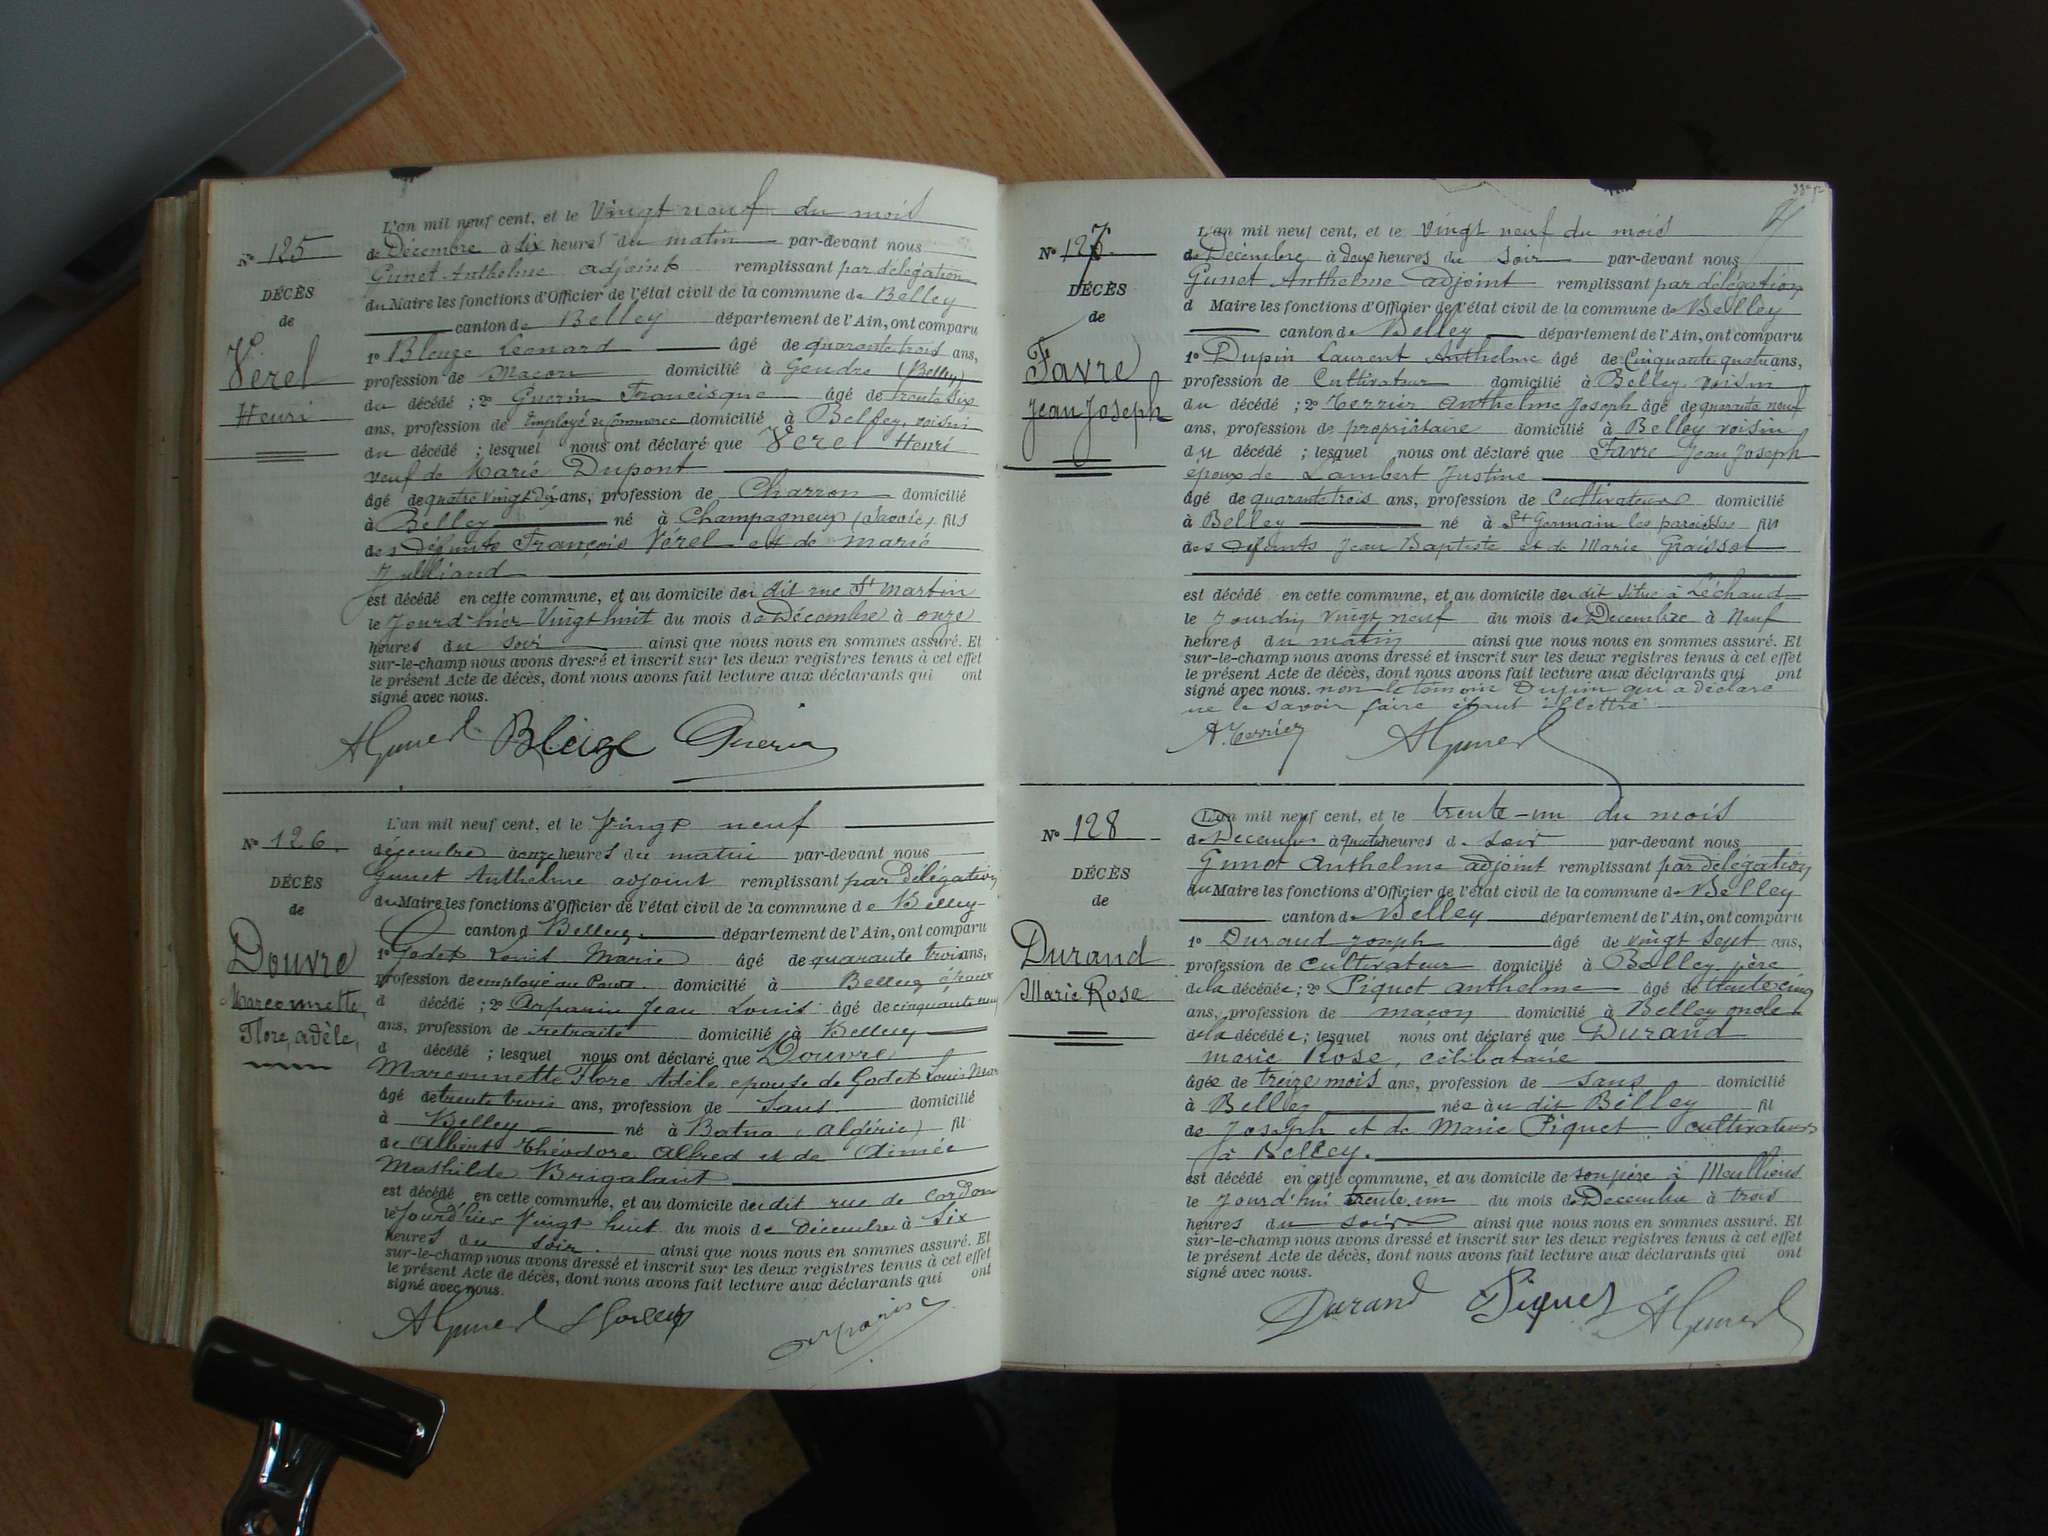 N° 125
DÉCÈS
de
Verel
Henri
L'an mil neuf cent, et le Vingt neuf du mois
de Décembre à six heures du matin par-devant nous
Gunet Anthelme adjoint remplissant par délégation
du Maire les fonctions d'Officier de l'état civil de la commune de Belley
canton de Belley département de l'Ain, ont comparu
1° Bleuze Leonard âgé de quarante trois ans,
profession de Maçon domicilié à Gendre (Belley)
du décédé ; 2° Guerin Francisque âgé de trente six
ans, profession de Employé de Commerce domicilié à Belley, voisin
du décédé ; lesquel nous ont déclaré que Verel Henri
veuf de Marie Dupont
âgé de quatre vingt dix ans, profession de Charron domicilié
à Belley né à Champagneux (Savoie) fils
des Défunts François Verel et de Marie
Julliand
est décédé en cette commune, et au domicile du dit rue St Martin
le Jourd'hier Vingt huit du mois de Décembre à onze
heures du soir ainsi que nous nous en sommes assuré. Et
sur-le-champ nous avons dressé et inscrit sur les deux registres tenus à cet effet
le présent Acte de décès, dont nous avons fait lecture aux déclarants qui ont
signé avec nous.
AGunet Bleuze Guerin
N° 126.
DÉCÈS
de
Douvre
Marconnette,
Flore, adèle,
L'an mil neuf cent, et le Vingt neuf
décembre à onze heures du matin par-devant nous
Gunet Anthelme adjoint remplissant par délégation
du Maire les fonctions d'Officier de l'état civil de la commune de Belley
canton d Belley département de l'Ain, ont comparu
1° Godet Louis Marie âgé de quarante trois ans,
profession de employé au domicilié à Belley époux
d décédé ; 2° Arpanin Jean Louis âgé de cinquante neuf
ans, profession de retraité domicilié à Belley
d décédé ; lesquel nous ont déclaré que Douvre
Marconnette Flore Adèle epouse de Godet Louis Mar
âgé de trente trois ans, profession de Sans domicilié
à Belley né à Batna (Algérie) fil
de Albert Théodore Alfred et de Aimée
Mathilde Brigalant
est décédé en cette commune, et au domicile du dit rue de Cordon
le Jourd'hier Vingt huit du mois de Décembre à Six
heures du soir. ainsi que nous nous en sommes assuré. Et
sur-le-champ nous avons dressé et inscrit sur les deux registres tenus à cet effet
le présent Acte de décès, dont nous avons fait lecture aux déclarants qui ont
signé avec nous.
AGunet
N° 127
DÉCÈS
de
Favre
Jean Joseph
L'an mil neuf cent, et le vingt neuf du mois
de Décembre à deux heures du soir par-devant nous
Gunet Anthelme adjoint remplissant par délégation
d Maire les fonctions d'Officier de l'état civil de la commune de Belley
canton de Belley département de l'Ain, ont comparu
1° Dupin Laurent Anthelme âgé de Cinquante quatre ans,
profession de Cultivateur domicilié à Belley voisin
du décédé ; 2° Terrier Anthelme Joseph âgé de quarante neuf
ans, profession de propriétaire domicilié à Belley voisin
du décédé ; lesquel nous ont déclaré que Favre Jean Joseph
époux de Lambert Justine
âgé de quarante trois ans, profession de Cultivateur domicilié
à Belley né à St Germain les paroisses fils
des défunts Jean Baptiste et de Marie Graisset
est décédé en cette commune, et au domicile du dit situe à Léchaud
le Jourdhy vingt neuf du mois de Decembre à Neuf
heures du matin ainsi que nous nous en sommes assuré. Et
sur-le-champ nous avons dressé et inscrit sur les deux registres tenus à cet effet
le présent Acte de décès, dont nous avons fait lecture aux déclarants qui ont
signé avec nous. non le temoin Dupin qui a déclaré
ne le savoir faire étant illettré
A. Terrier AGunet
N° 128
DÉCÈS
de
Durand
Marie Rose
L'an mil neuf cent, et le trente-un du mois
de Decembre à quatre heures d soir par-devant nous
Gunet Anthelme adjoint remplissant par délégation
du Maire les fonctions d'Officier de l'état civil de la commune de Belley
canton de Belley département de l'Ain, ont comparu
1° Durand Joseph âgé de vingt sept ans,
profession de Cultivateur domicilié à Belley père
de la décédée ; 2° Piquet Anthelme âgé de trente cinq
ans, profession de maçon domicilié à Belley oncle
de la décédée ; lesquel nous ont déclaré que Durand
Marie Rose, célibataire
âgée de treize mois ans, profession de sans domicilié
à Belley née à u dit Belley fil
de Joseph et de Marie Piquet cultivateurs
à Belley.
est décédé en cette commune, et au domicile de son père à Meulliens
le Jourd'hui trente un du mois de Decembre à trois
heures du soir ainsi que nous nous en sommes assuré. Et
sur-le-champ nous avons dressé et inscrit sur les deux registres tenus à cet effet
le présent Acte de décès, dont nous avons fait lecture aux déclarants qui ont
signé avec nous.
Durand Piquet AGunet